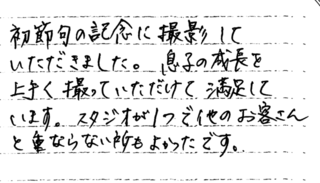 初節句の記念に撮影して
いただきました。息子の成長を
上手く撮っていただけて満足して
います。スタジオが1つで他のお客さん
と重ならない所もよかったです。